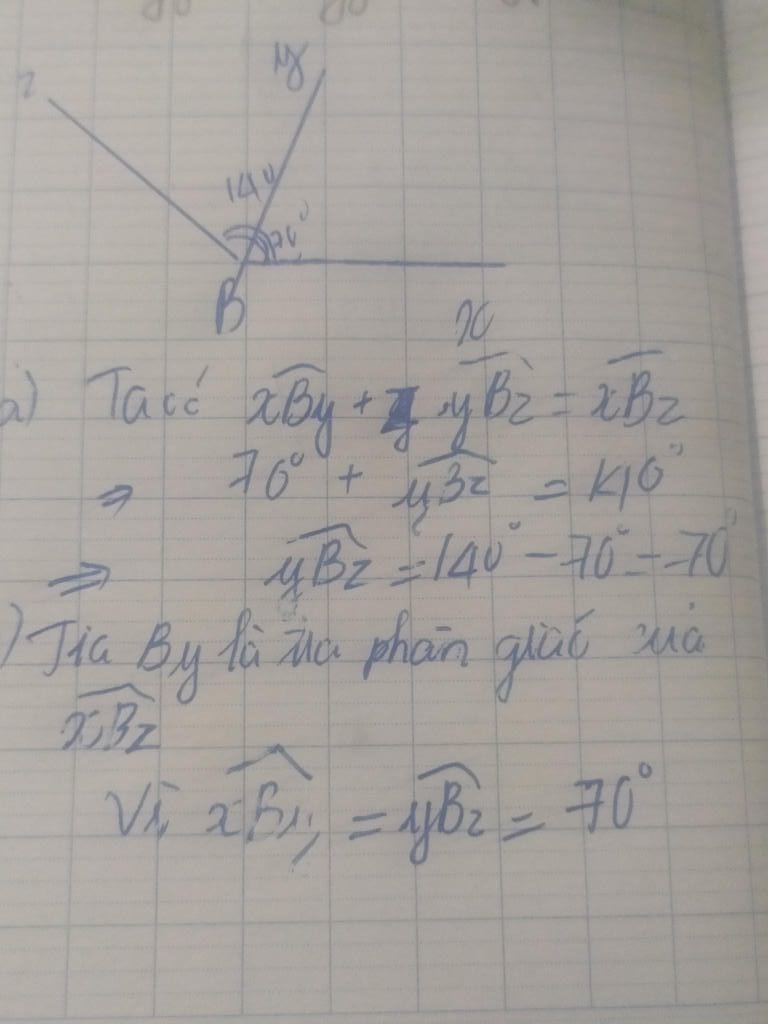 z
y
140
70°
B
x
a) Ta có xBy + yBz = xBz
⇒ 70° + yBz = 140°
⇒ yBz = 140° - 70° = 70°
) Tia By là tia phân giác của
xBz
Vì xBy = yBz = 70°